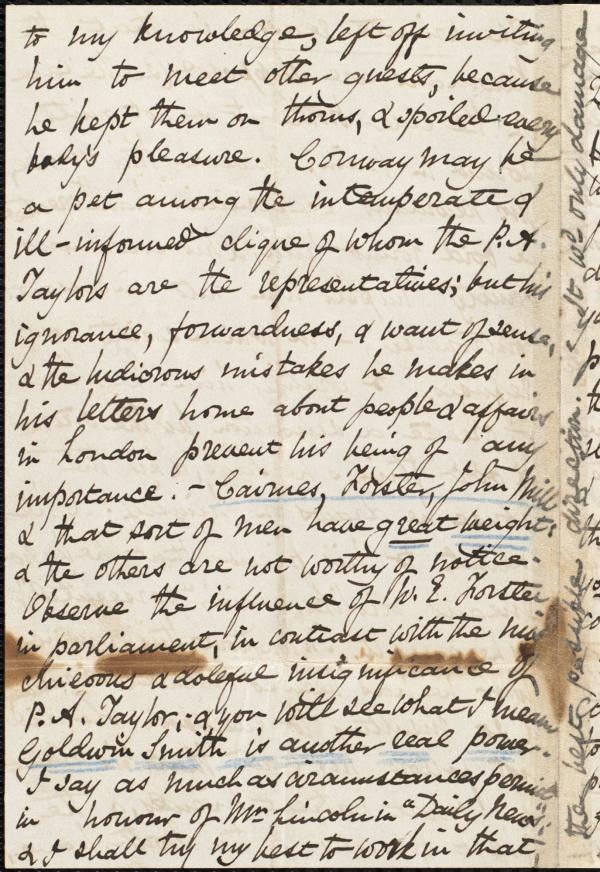 to my knowledge, left off inviting
him to meet other guests, because
he kept them on thorns, & spoiled every
body's pleasure. Conway may be
a pet among the intemperate &
ill-informed clique of whom the P. A.
Taylors are the representatives; but his
ignorance, forwardness, & want of sense,
& the ludicrous mistakes he makes in
his letters home about people & affairs
in London prevent his being of any
importance. - Cairnes, Forster, John Mill
& that sort of men have great weight;
& the others are not worthy of notice.
Observe the influence of W. E. Forster
in parliament, in contrast with the mis
chievous & doleful insignificance of
P. A. Taylor; & you will see what I mean
Goldwin Smith is another real power.
I say as much as circumstances permit
in honour of Mr Lincoln in "Daily News".
& I shall try my best to work in that,
the best possible direction. & yt wd only damage